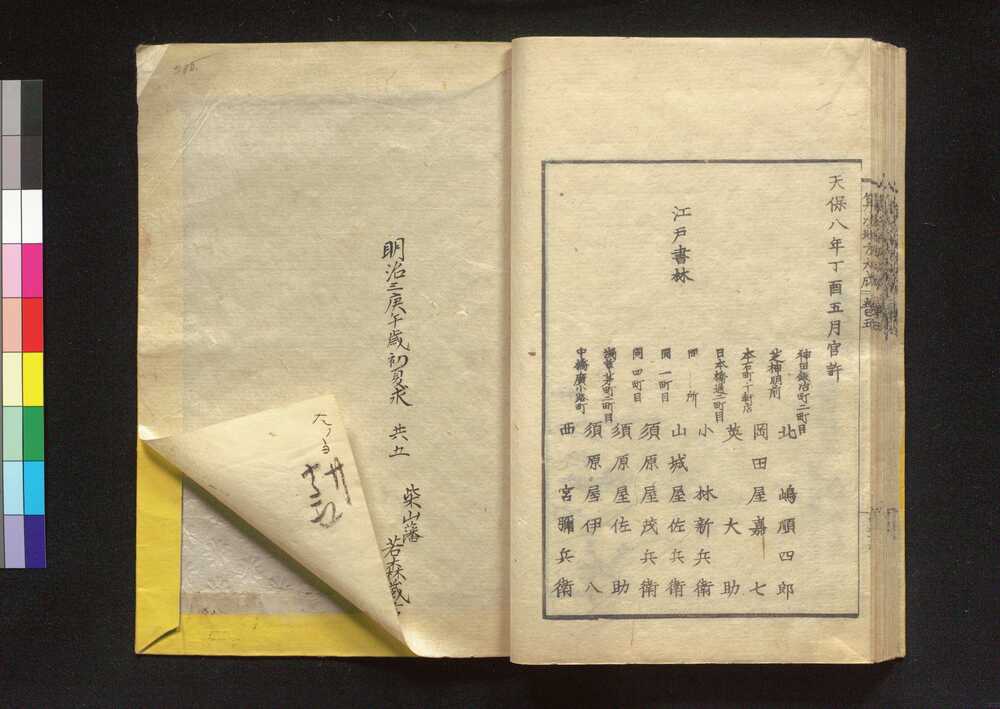 天保八年丁酉五月官許
江戸書林
神田鍛冶町二町目 北嶋順四郎
芝神明前 岡田屋嘉七
本石町十軒店 英大助
日本橋通二町目 小林新兵衛
同所 山城屋佐兵衛
同一町目 須原屋茂兵衛
同四町目 須原屋佐助
浅草茅町二町目 須原屋伊八
中橋廣小路町 西宮彌兵衛
明治三庚午歳初夏求 共五
柴山藩
若森蔵